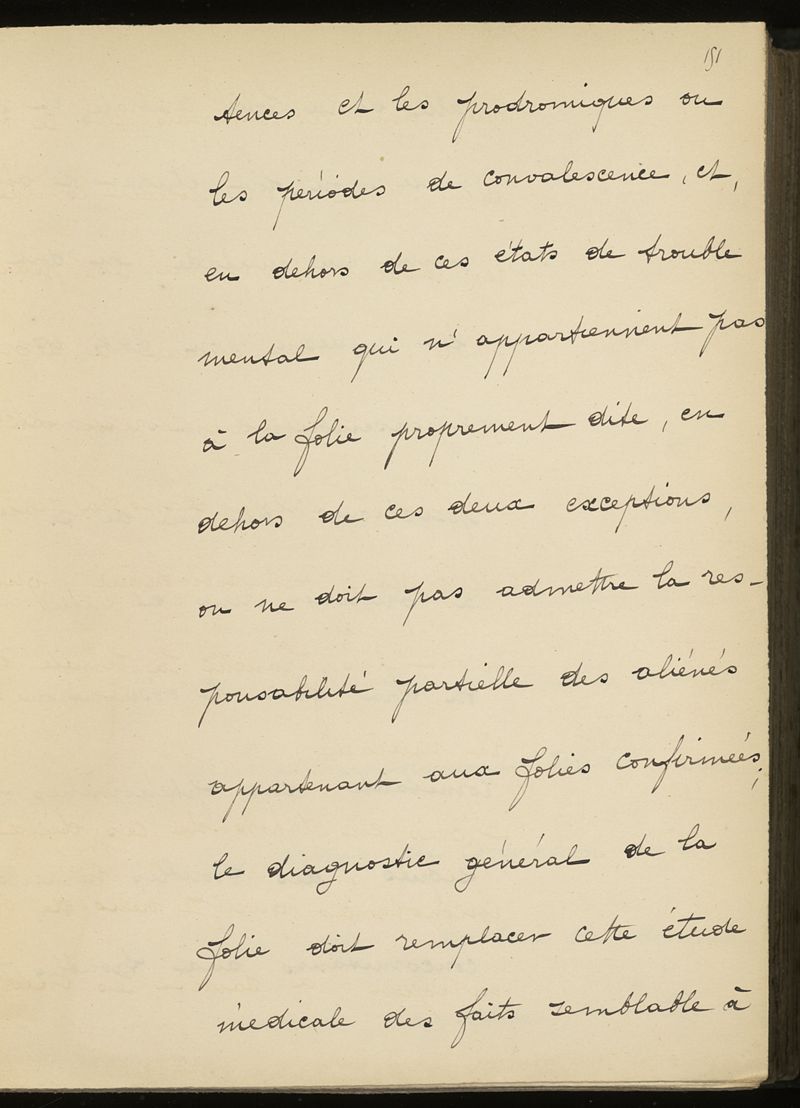 151
tences et les prodromiques ou
les périodes de convalescence, et,
en dehors de ces états de trouble
mental qui n'appartiennent pas
à la folie proprement dite, en
dehors de ces deux exceptions,
on ne doit pas admettre la res-
ponsabilité partielle des aliénés
appartenant aux folies confirmées;
le diagnostic général de la
folie doit remplacer cette étude
médicale des faits semblable à